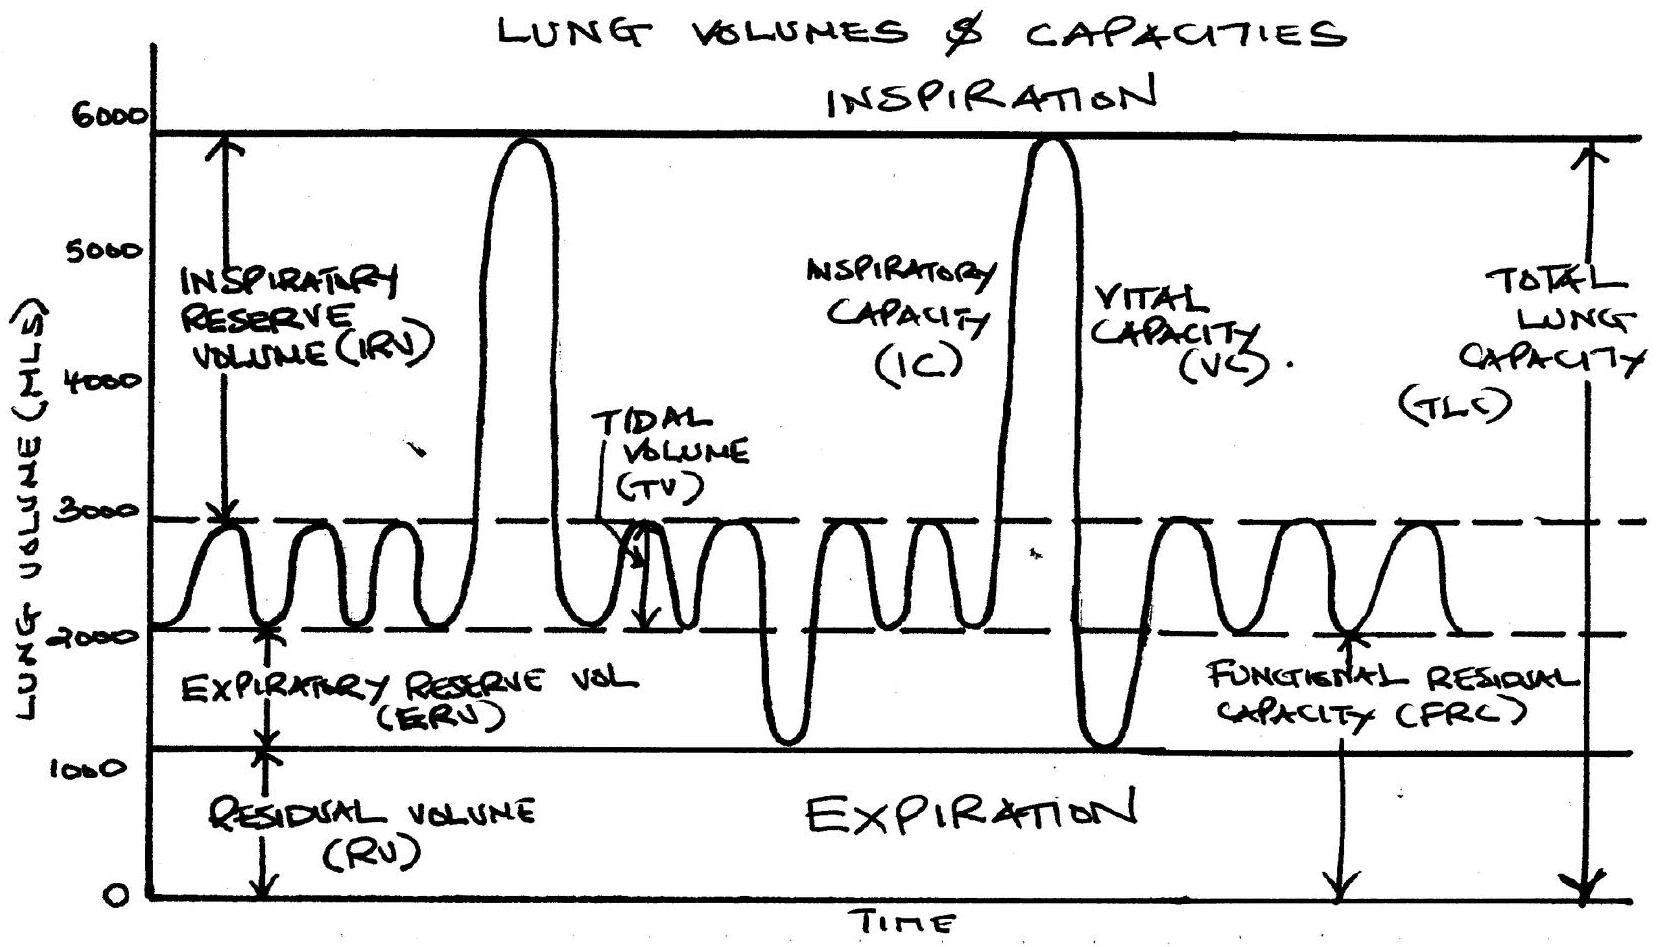 LUNG VOLUMES & CAPACITIES
INSPIRATION
6000
5000
4000
3000
2000
1000
0
LUNG VOLUME (MLS)
INSPIRATORY
RESERVE
VOLUME (IRV)
TIDAL
VOLUME
(TV)
INSPIRATORY
CAPACITY
(IC)
VITAL
CAPACITY
(VC).
TOTAL
LUNG
CAPACITY
(TLC)
EXPIRATORY RESERVE VOL
(ERV)
FUNCTIONAL RESIDUAL
CAPACITY (FRC)
RESIDUAL VOLUME
(RV)
EXPIRATION
TIME